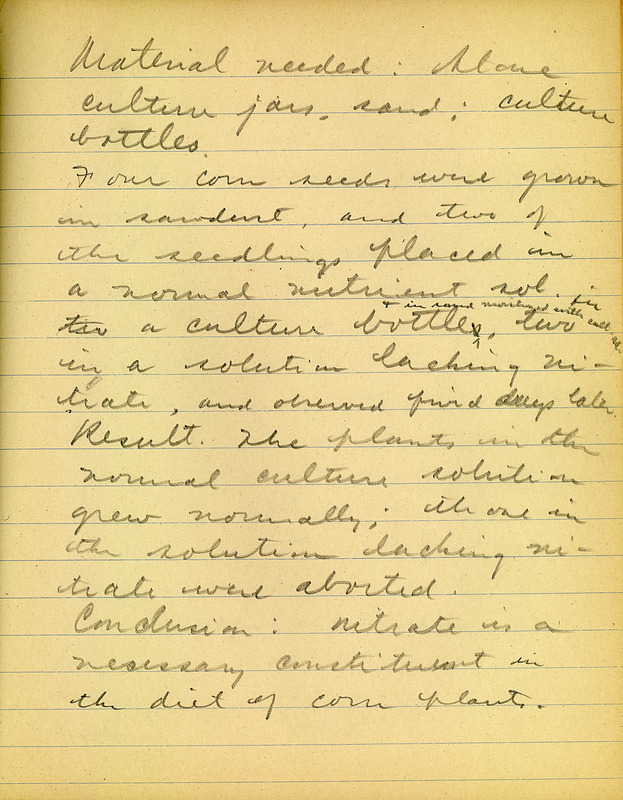 Material needed: Stone
culture jars, sand; culture
bottles.
Four corn seeds were grown
in sawdust, and two of
the seedlings placed in
a normal nutrient sol. in
& in sand moistened with cult. sol.
a culture bottle, two
in a solution lacking ni-
trate, and observed five days later.
Result. The plants in the
normal culture solution
grew normally; those in
the solution lacking ni-
trate were aborted.
Conclusion: nitrate is a
necessary constituent in
the diet of corn plants.